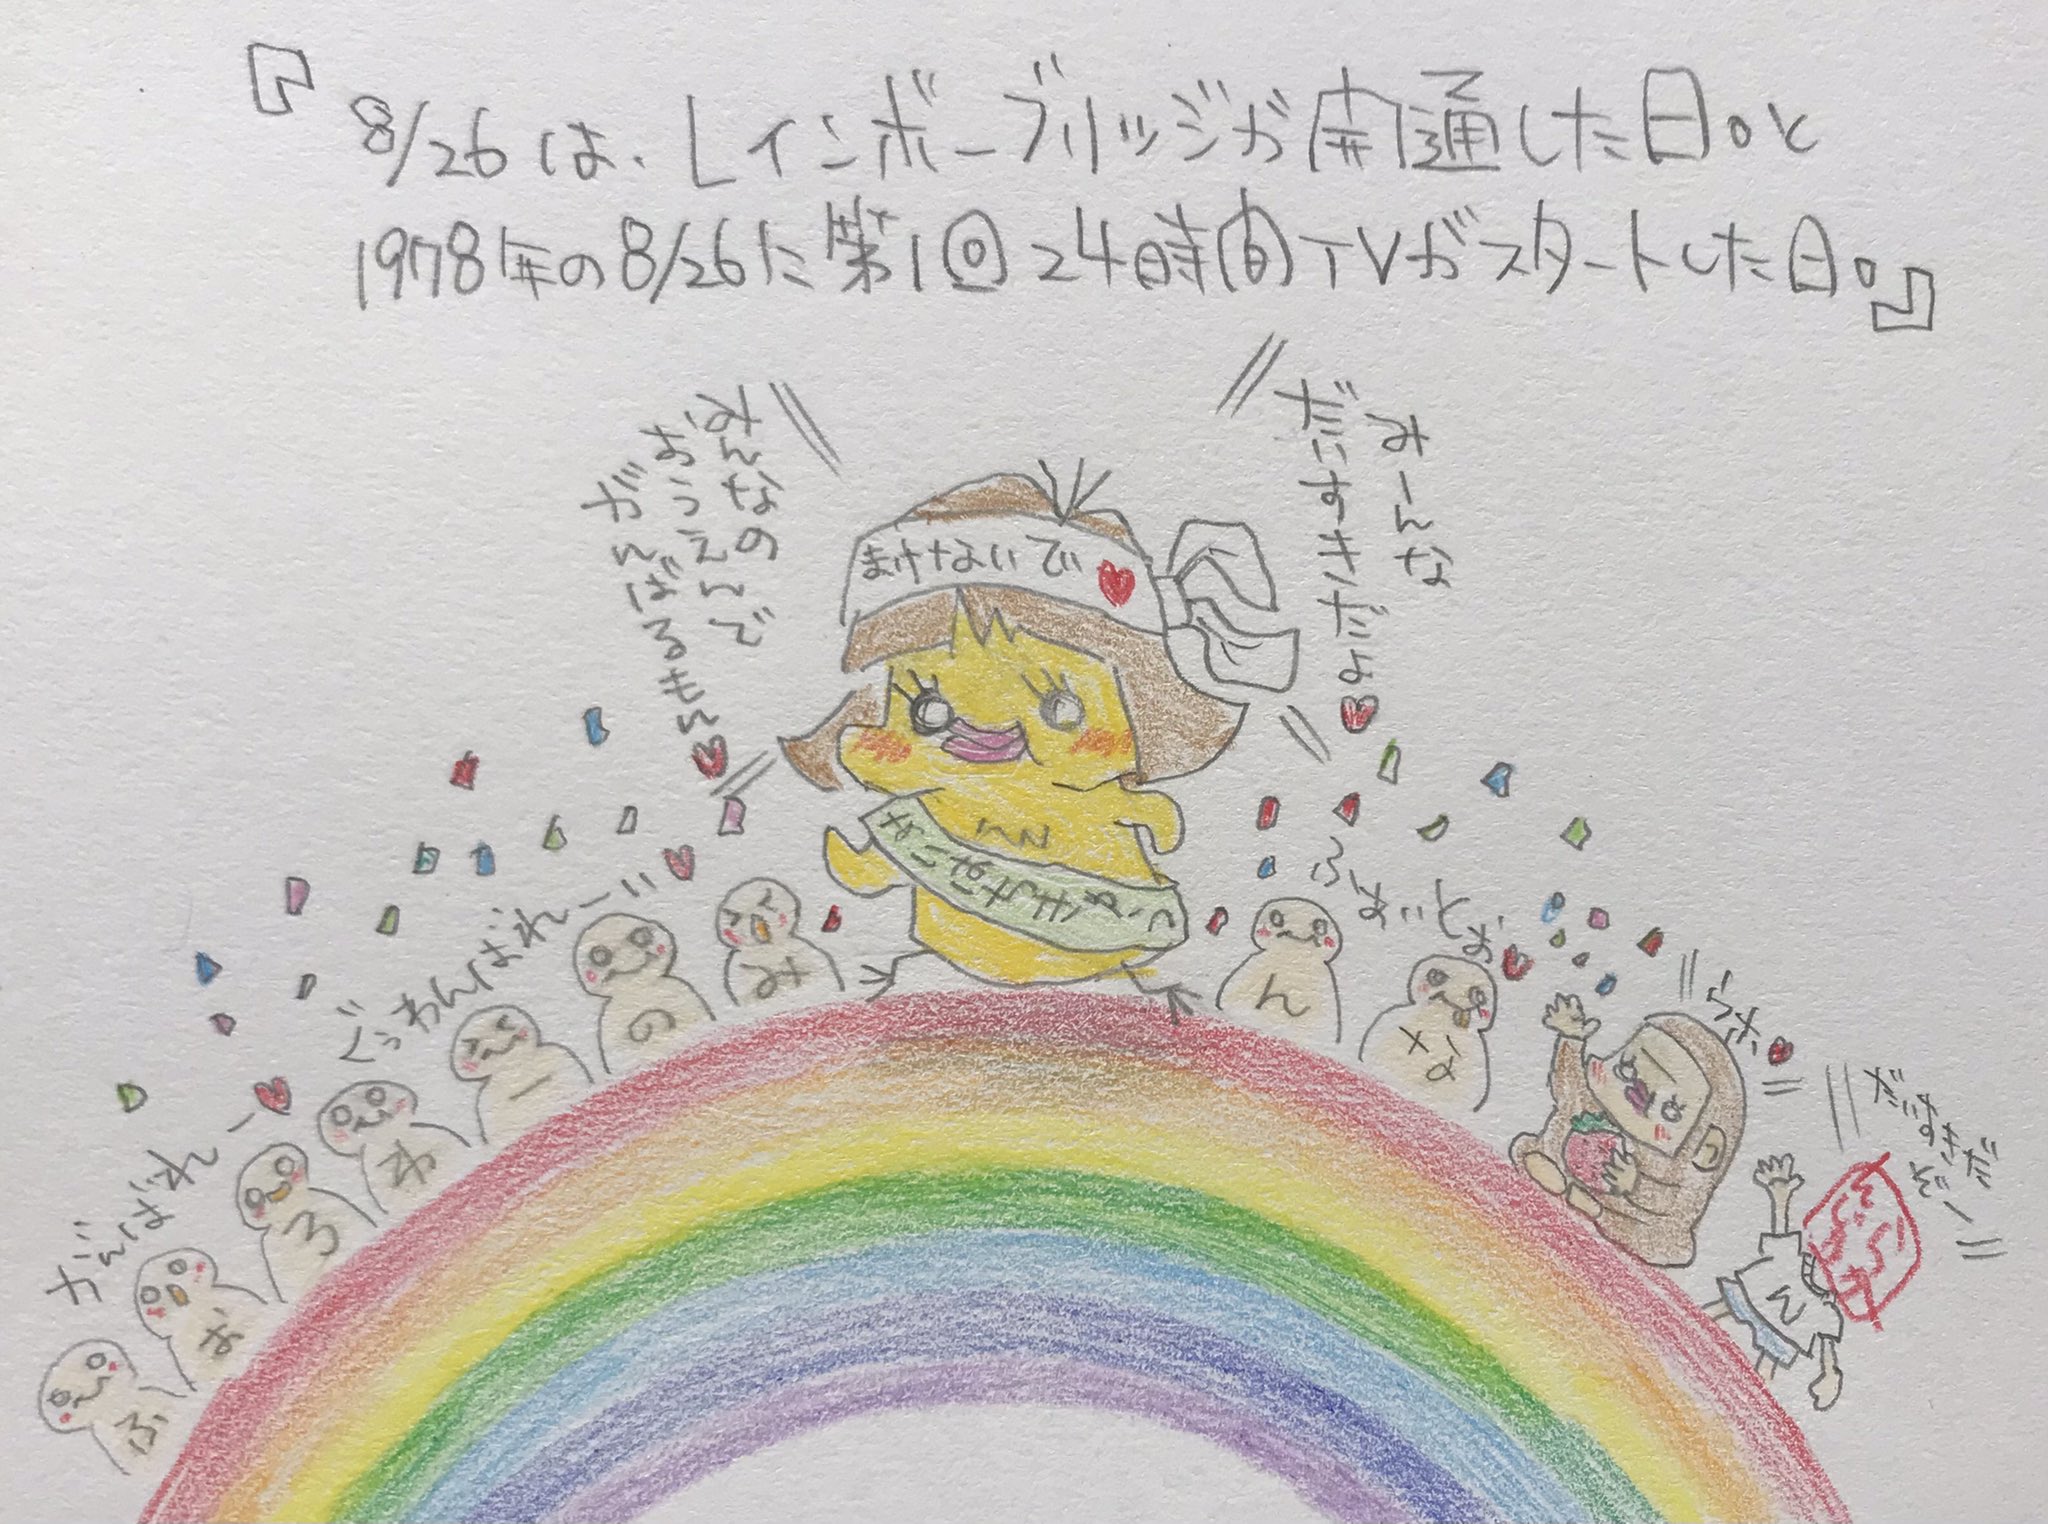 『8/26は、レインボーブリッジが開通した日。と
1978年の8/26に第1回24時間TVがスタートした日。』
みんなの
おうえんで
がんばるもん
みーんな
だいすきだよ
まけないで
ふぁいとぉ
ぐぅわんばれー!!
がんばれー
ふ
ぉ
ろ
わ
ー
の
み
ん
な
だいすき
だ
ぞー